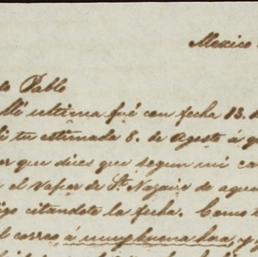 Mexico
to Pablo
Mi ultima fué con fecha 13. d
i tu estimada 8. de Agosto á q
or que dices que segun mi ca
el Vapor de St. Nazaire de aqu
igo citandote la fecha. Como
l correo á muy buena hora, y